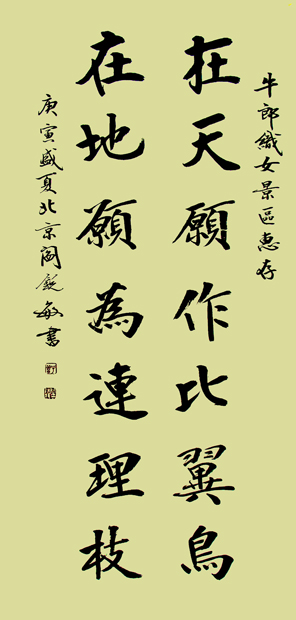 牛郎織女景區惠存
在天願作比翼鳥
在地願為連理枝
庚寅盛夏北京閻銳敏書